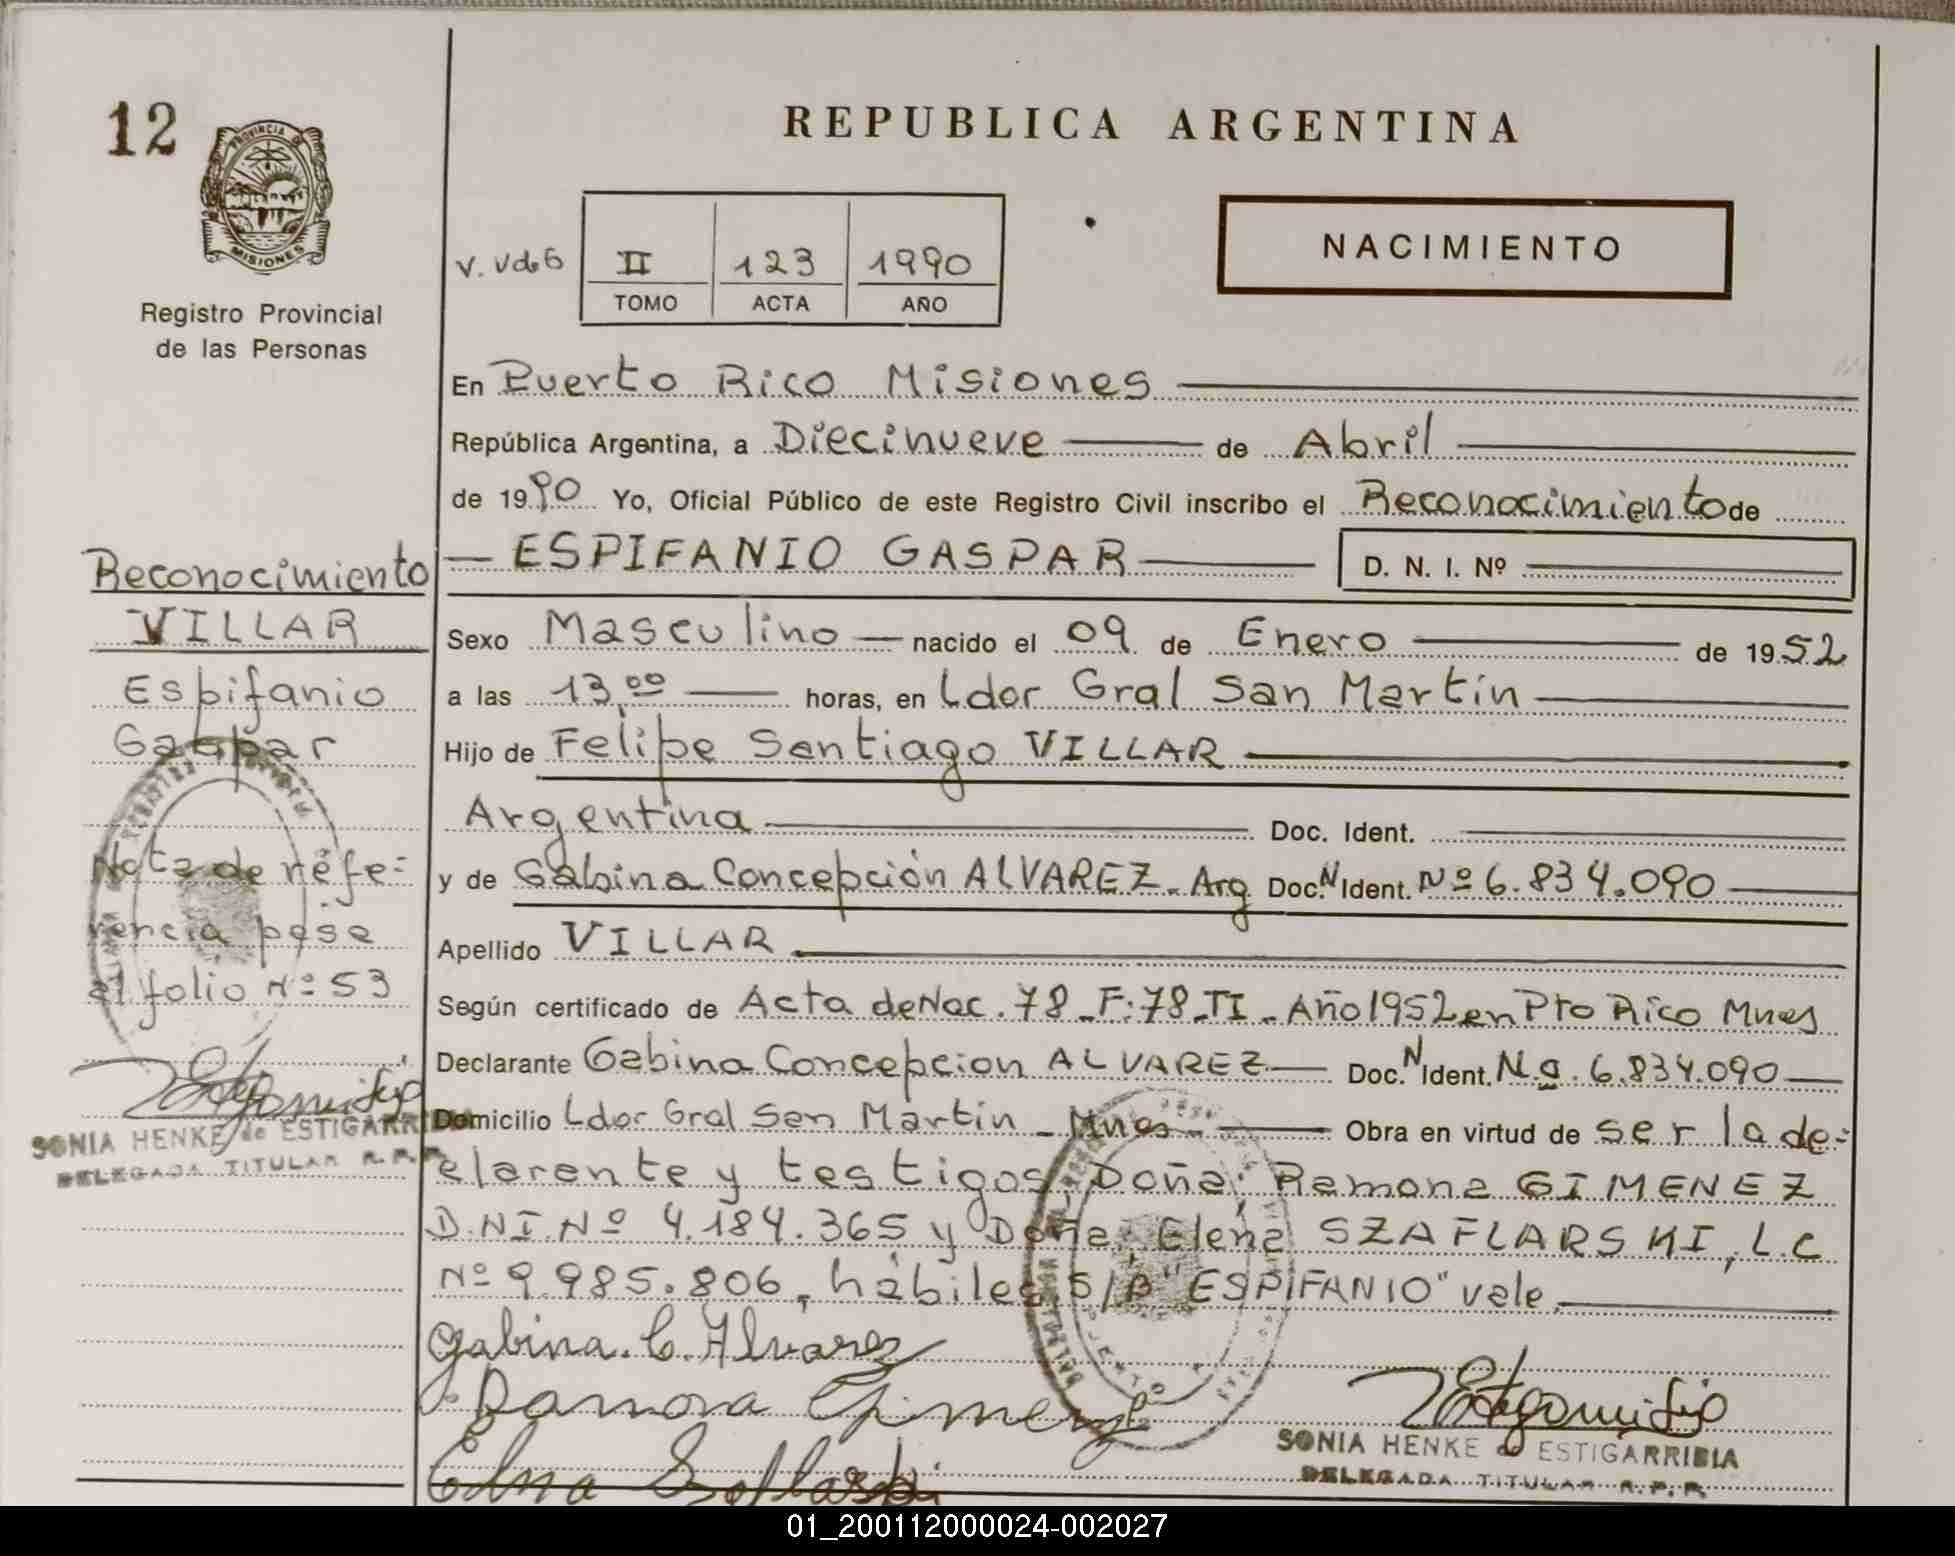 12
PROVINCIA DE
MISIONES
Registro Provincial
de las Personas
REPUBLICA ARGENTINA
NACIMIENTO
II 123 1990
TOMO ACTA AÑO
En Puerto Rico Misiones
República Argentina, a Diecinueve de Abril
de 1990 Yo, Oficial Público de este Registro Civil inscribo el Reconocimiento de
ESPIFANIO GASPAR D. N. I. Nº
Sexo Masculino nacido el 09 de Enero de 1952
a las 13,00 horas, en Ldor Gral San Martin
Hijo de Felipe Santiago VILLAR
Argentina Doc. Ident.
y de Gabina Concepción ALVAREZ. Arg Doc.N Ident. Nº 6.834.090
Apellido VILLAR
Según certificado de Acta de Nac. 78_F:78_TI_Año 1952 en Pto Rico Mnes
Declarante Gabina Concepcion ALVAREZ Doc.N Ident. Nº. 6.834.090
Domicilio Ldor Gral San Martin _ Mnes Obra en virtud de ser la de=
clarante y testigos, Doña: Ramona GIMENEZ
D.NI.Nº 4.184.365 y Doña: Elena SZAFLARSKI, L.C
Nº 9.985.806, hábiles, S/B "ESPIFANIO" vale
Gabina. C. Alvarez
Ramona Gimenez
SONIA HENKE de ESTIGARRIBIA
DELEGADA TITULAR R.P.P.
Reconocimiento
VILLAR
Espifanio
Gaspar
Nota de refe=
rencia pasa
al folio Nº 53
SONIA HENKE de ESTIGARRIBIA
DELEGADA TITULAR R.P.P.
01_200112000024-002027